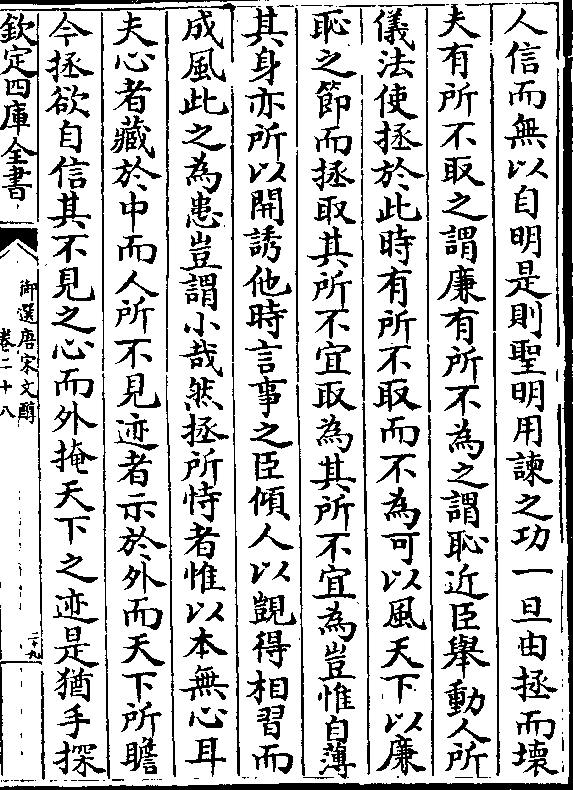 人信而無以自明是則聖明用諫之功一旦由拯而壞
夫有所不取之謂廉有所不為之謂恥近臣舉動人所
儀法使拯於此時有所不取而不為可以風天下以廉
恥之節而拯取其所不宜取為其所不宜為豈惟自薄
其身亦所以開誘他時言事之臣傾人以覬得相習而
成風此之為患豈謂小哉然拯所恃者惟以本無心耳
夫心者藏於中而人所不見迹者示於外而天下所瞻
今拯欲自信其不見之心而外掩天下之迹是猶手探
欽定四庫全書
御選唐宋文醇
卷二十八
二十九